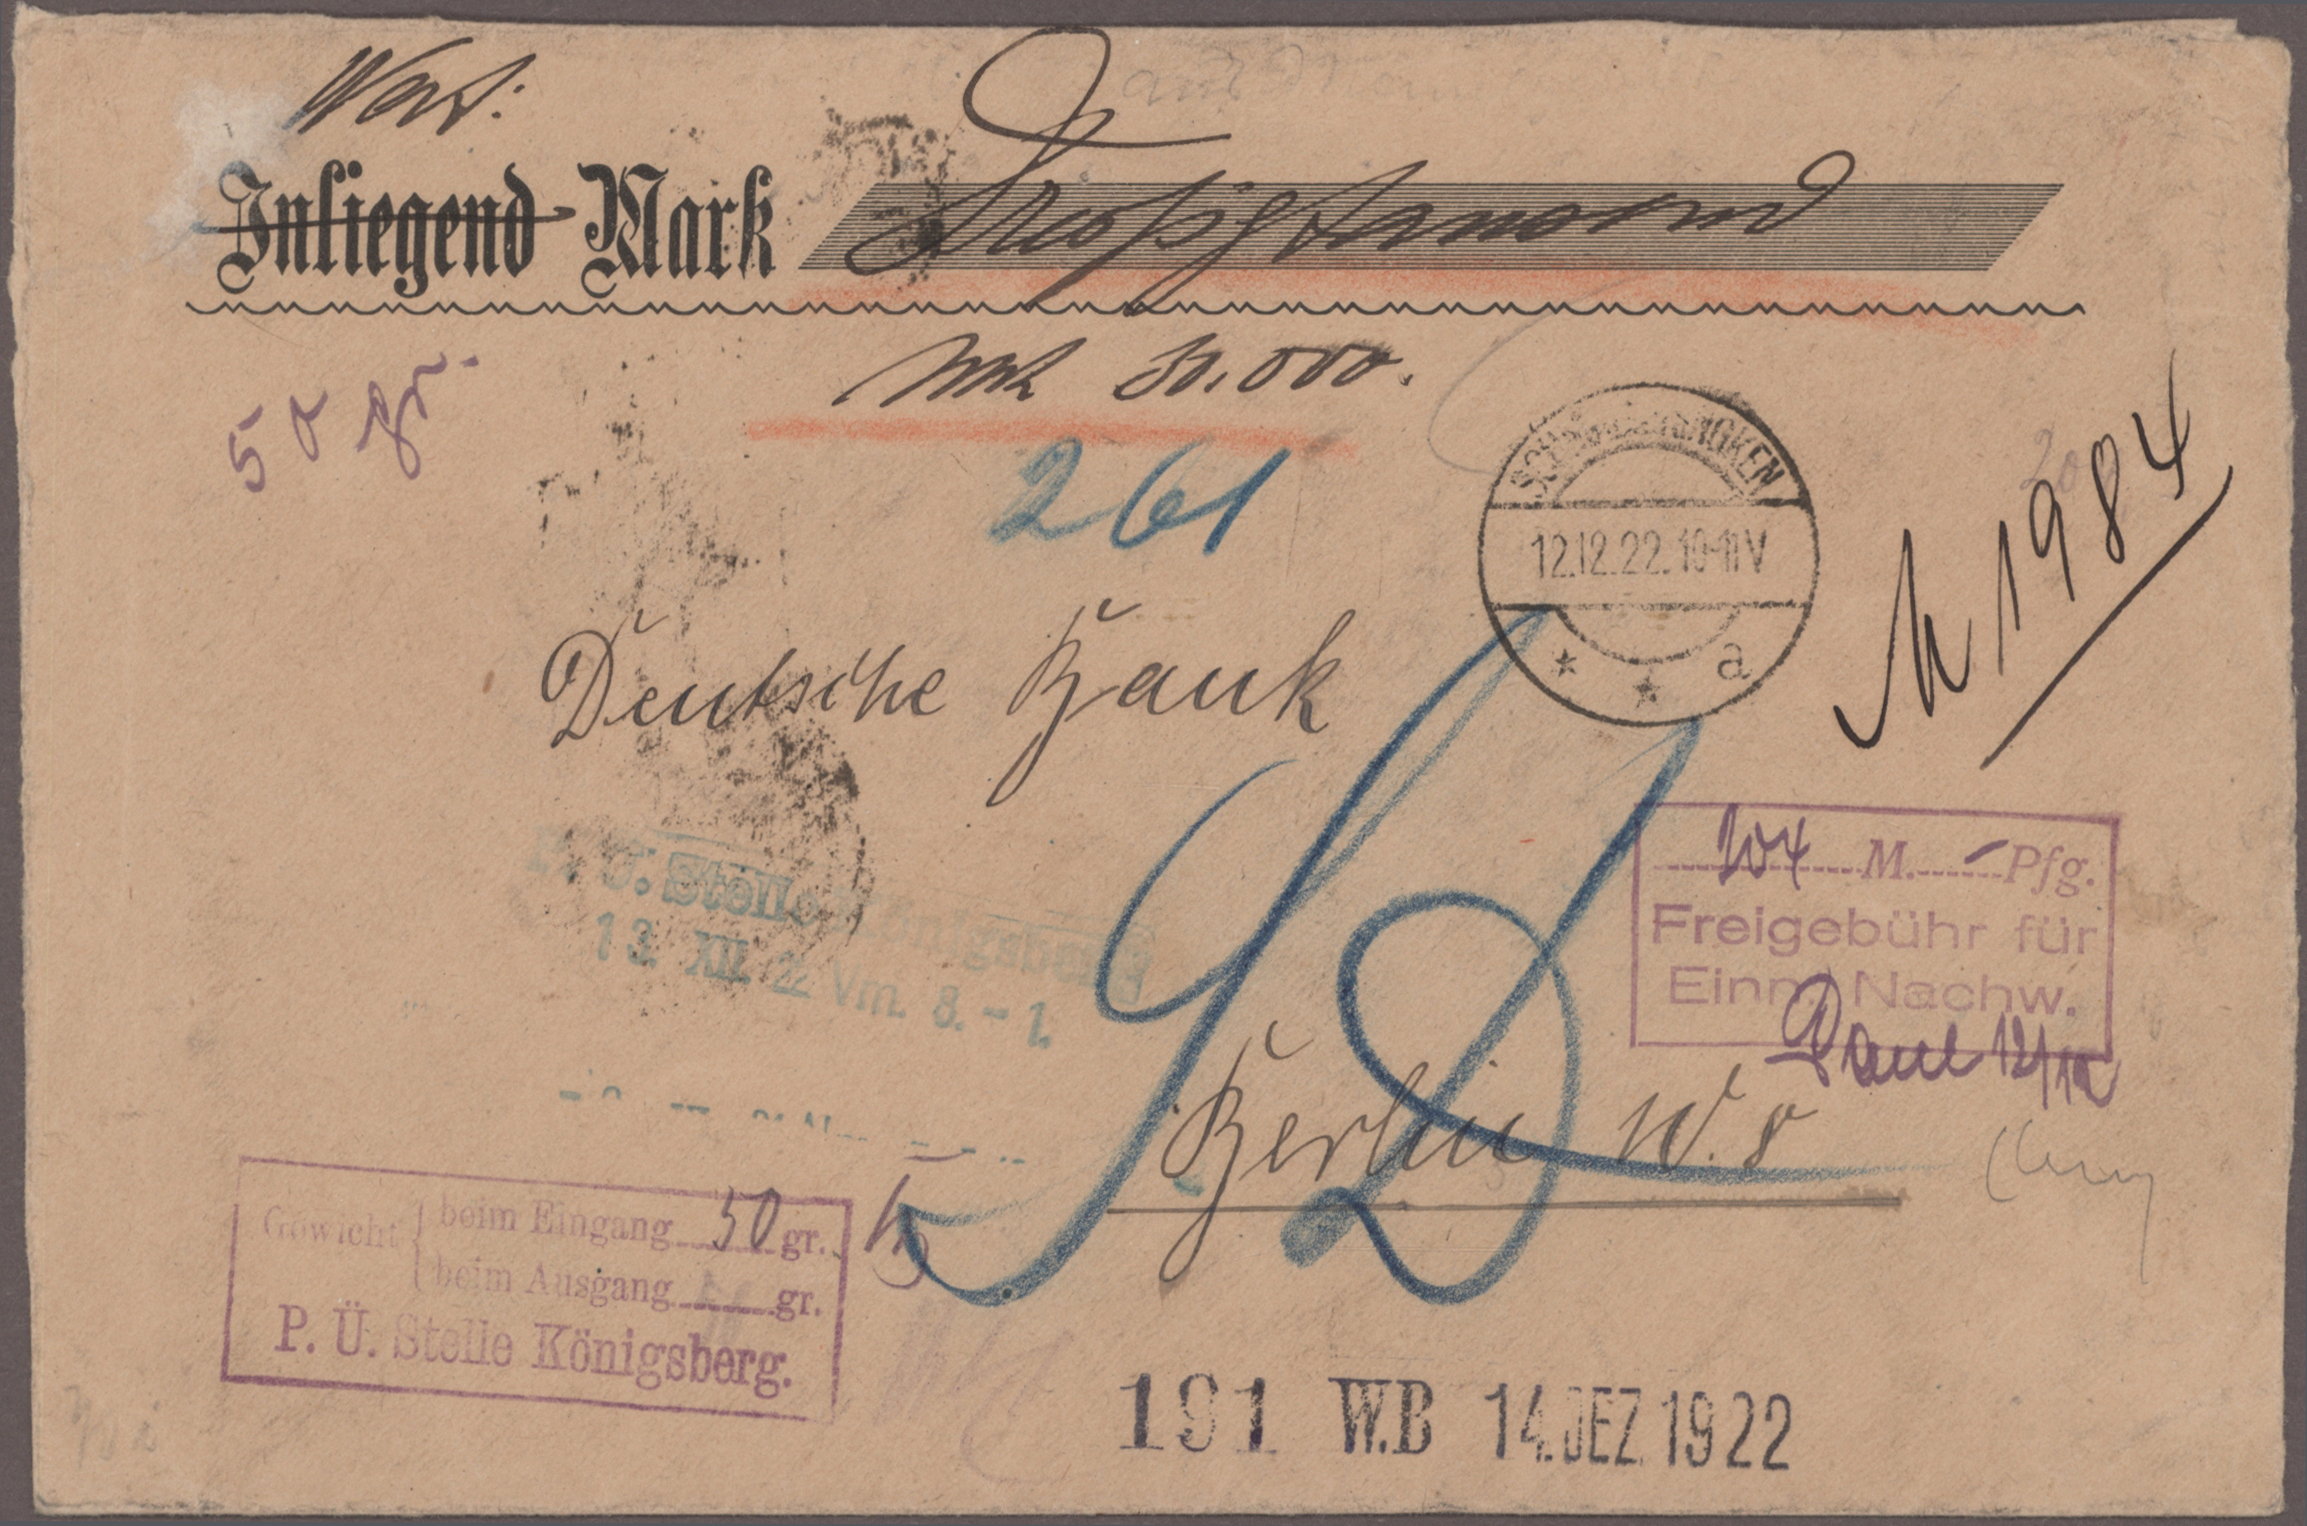 Wert:
Inliegend Mark Dreissigtausend
Mk 30.000.
50 gr.
261
12.12.22.10-11V
a
1984
Deutsche Bank
204 M. - Pfg.
Freigebühr für
Einn. Nachw.
Paul 12/12
P. Ü. Stelle Königsberg
13. XII. 22 Vm. 8.-1.
Berlin W. 8
Gewicht beim Eingang 50 gr.
beim Ausgang gr.
P. Ü. Stelle Königsberg.
191 W.B 14.DEZ.1922